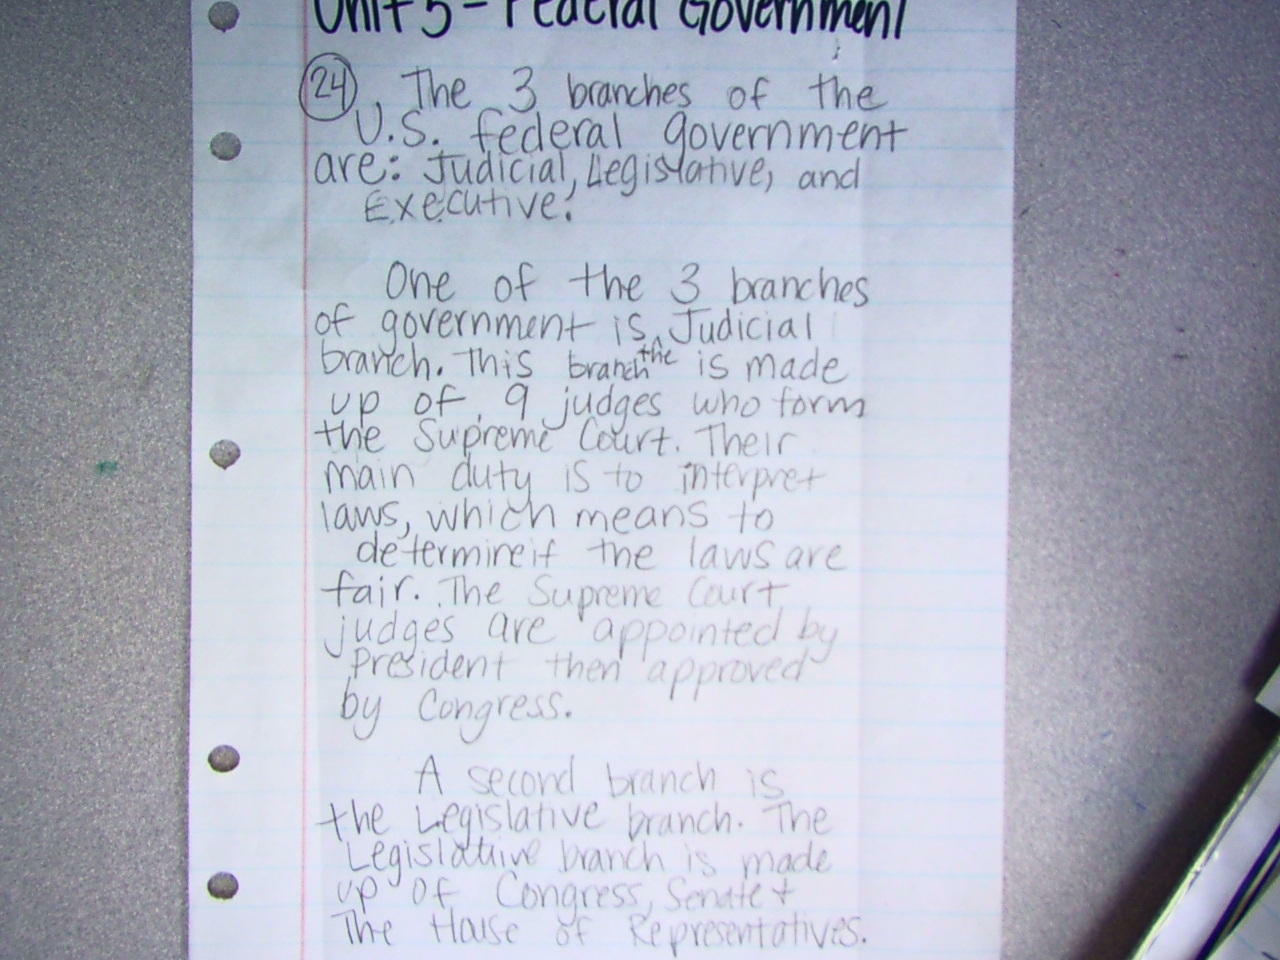 Unit 5 - Federal Government
24, The 3 branches of the
U.S. federal government
are: Judicial, Legislative, and
Executive.
One of the 3 branches
of government is ^ Judicial
branch. This branch the is made
up of 9 judges who form
the Supreme Court. Their
main duty is to interpret
laws, which means to
determine if the laws are
fair. The Supreme Court
judges are appointed by
President then approved
by Congress.
A second branch is
the Legislative branch. The
Legislative branch is made
up of Congress, Senate +
The House of Representatives.